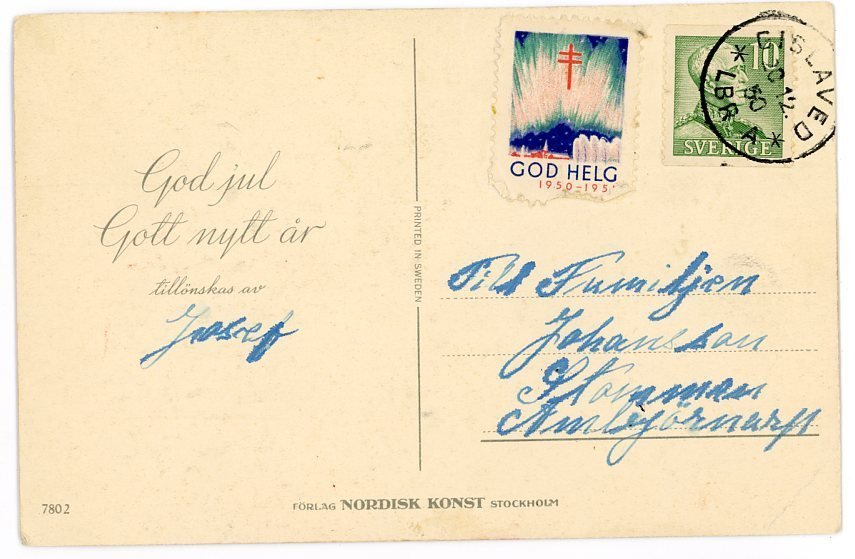 God jul
Gott nytt år
tillönskas av
Josef
PRINTED IN SWEDEN
GOD HELG
1950-195
10
SVERIGE
GISLAVED
12. 50
LBR A
Till Familjen
Johansson
Stomman
Ambjörnarp
7802
FÖRLAG NORDISK KONST STOCKHOLM